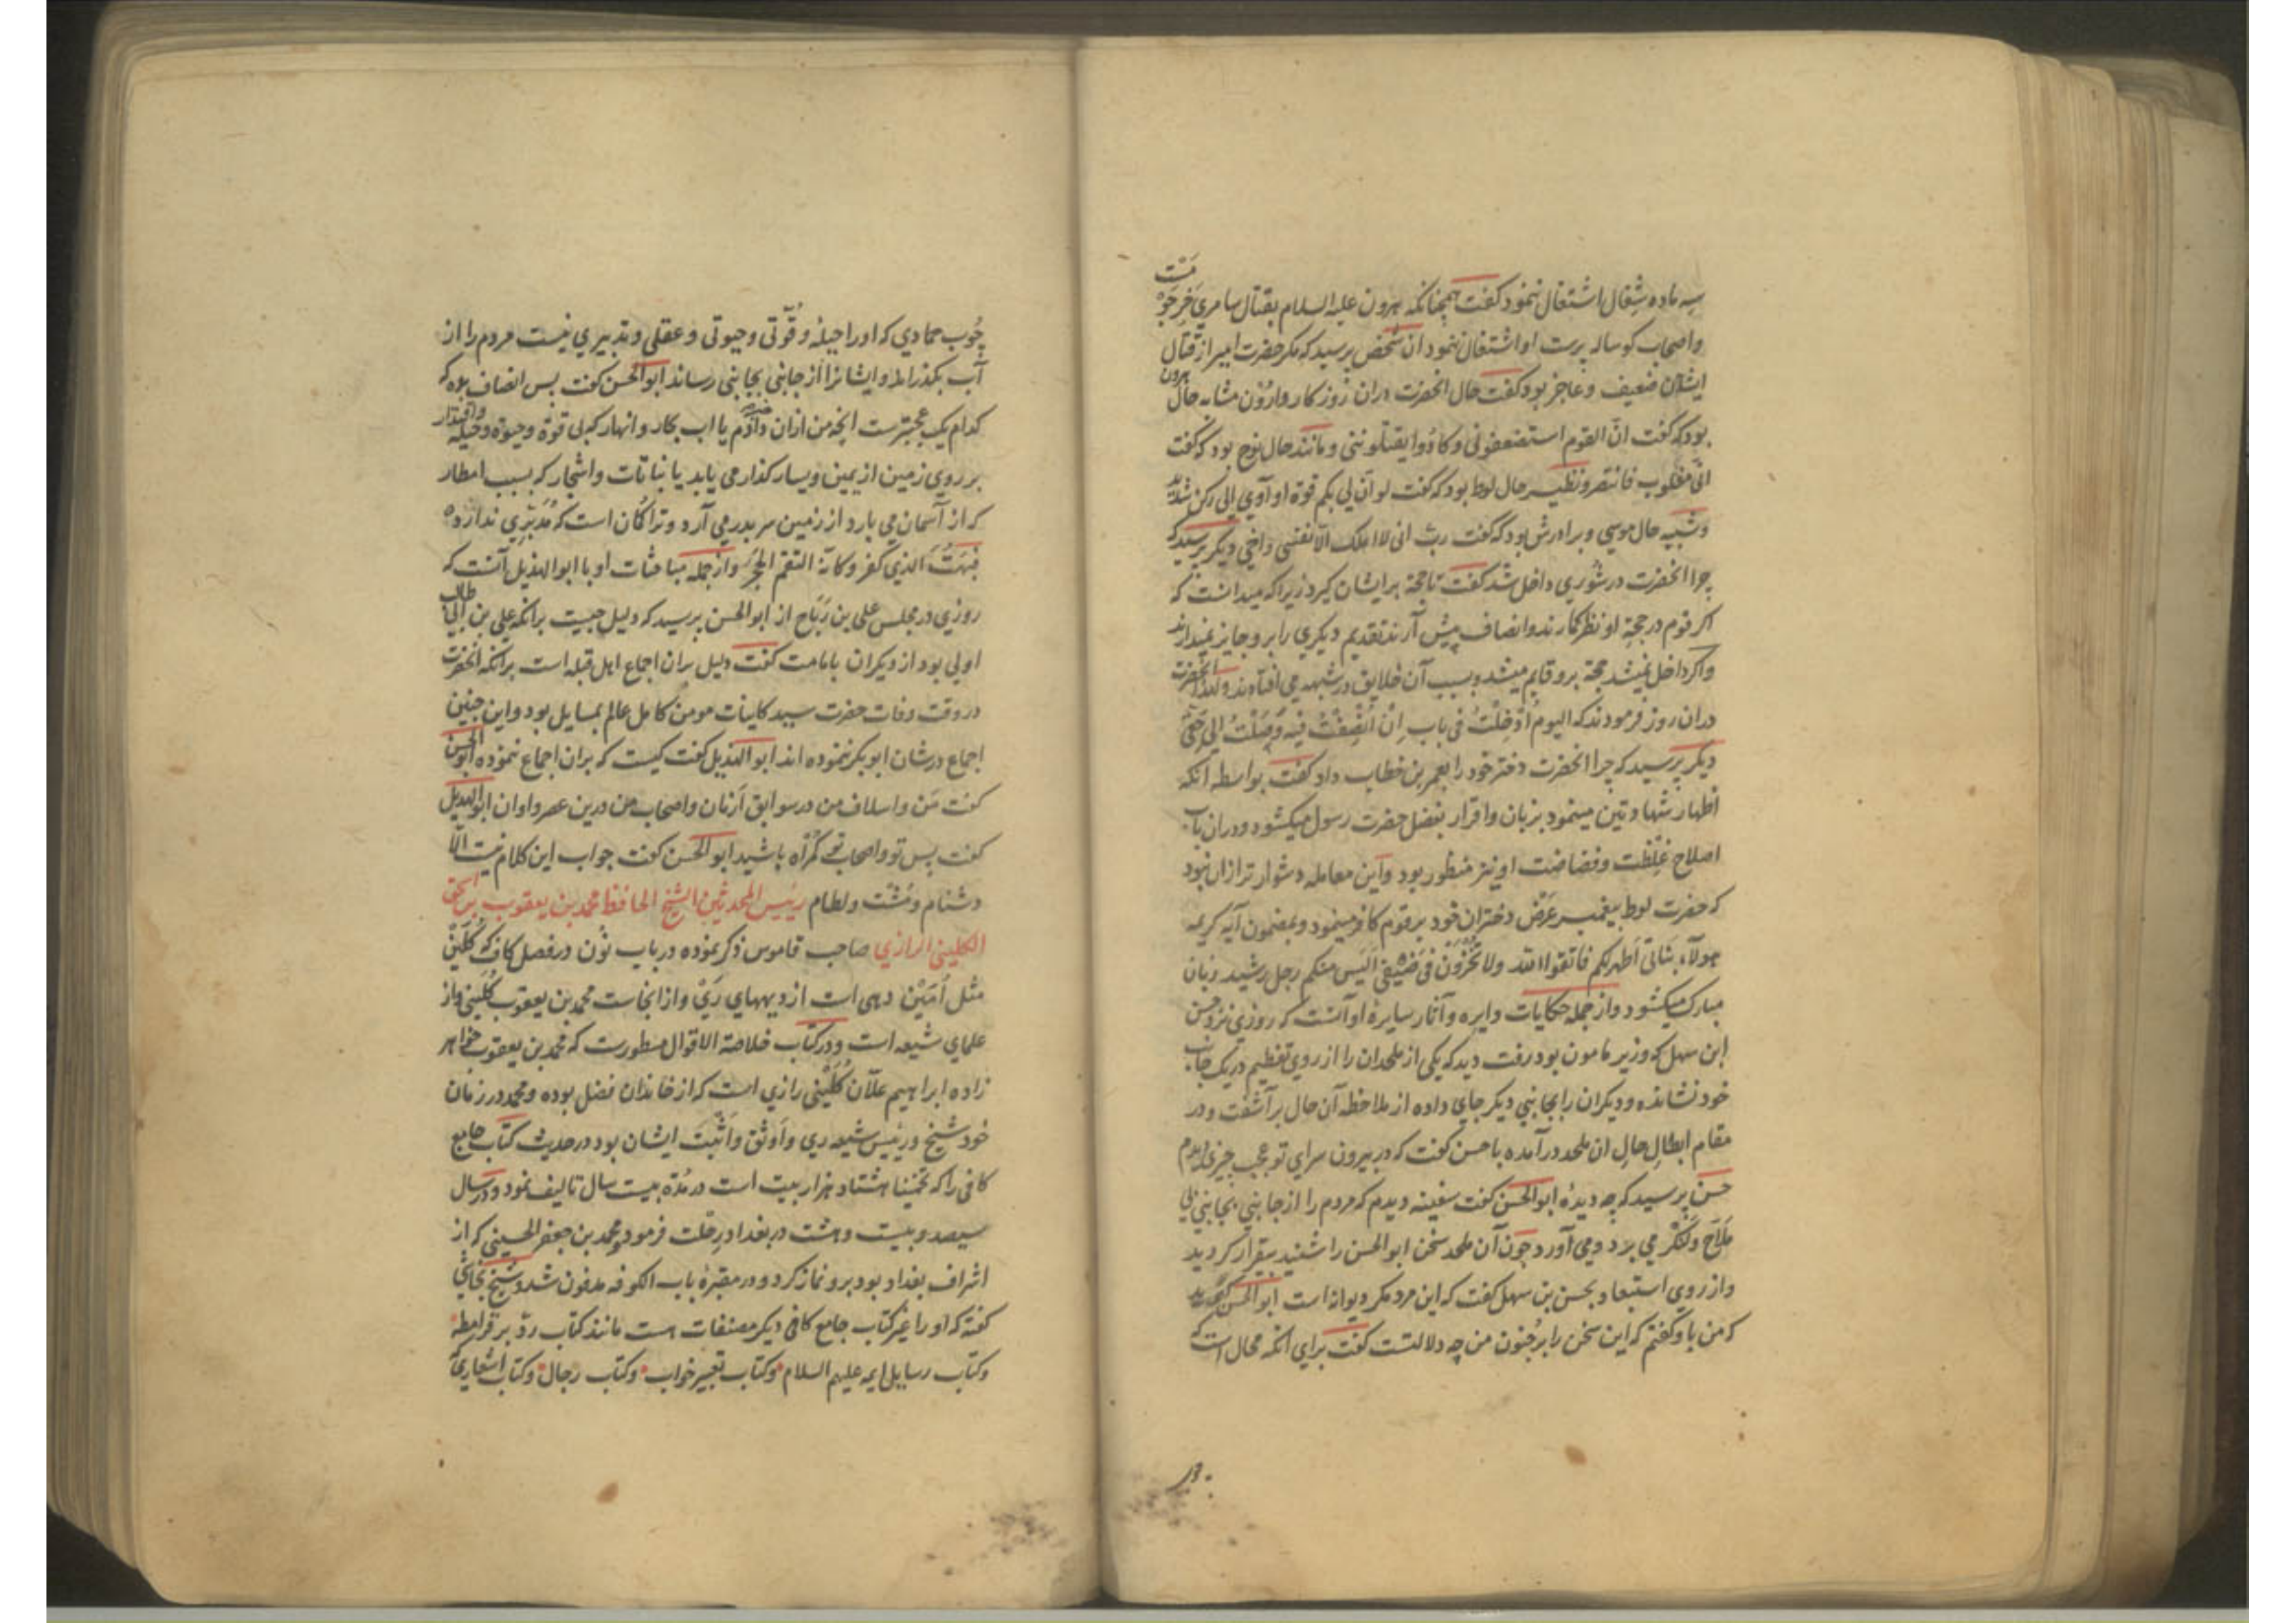 سه ماده شغال اشتغال ننمود گفت همچنانکه هرون علیه السلام بقتال سامری خرجوه منت
واصحاب کوساله پرست او اشتغال ننمود ان شخص پرسید که مکر حضرت امیر از قتال
ایشان ضعیف وعاجز بود گفت حال انحضرت دران روزکار وارون مشابه حال هرون
بود که گفت انّ القوم استضعفونی وکادوا یقتلوننی ومانند حال نوح بود که گفت
انّی مغلوب فانتصر ونظیر حال لوط بود که گفت لو انّ لی بکم قوة او آوی الی رکن شدید
وشبیه حال موسی وبرادرش بود که گفت ربّ انی لا املک الّا نفسی واخی دیکر پرسید که
چرا انحضرت در شوری داخل شد گفت تا حجّة بر ایشان کیرد زیرا که میدانست که
اکر قوم در حجّة او نظر کمارند وانصاف پیش آرند تقدیم دیکری را برو جایز نمیدارند
واکر داخل نمیشد حجة برو قایم میشد وبسبب آن خلایق در شبهه می افتادند ولهذا انحضرت
دران روز فرمودند که الیوم اُدْخِلْتُ فی باب اِنْ اُنْصِفْتُ فیه وَصَلْتُ الی حَقّی
دیکر پرسید که چرا انحضرت دختر خود را بعمر بن خطاب داد گفت بواسطه انکه
اظهار شهادتین مینمود بزبان واقرار بفضل حضرت رسول میکشود ودران باب
اصلاح غِلْظت وفضاضت او نیز منظور بود واین معامله دشوار تر ازان نبود
که حضرت لوط پیغمبر عَرْض دختران خود بر قوم کافر مینمود وبمضمون آیه کریمه
هولآء بناتی اَطْهر لکم فاتقوا الله ولا تُخْزُون فی ضَیْفی الَیْس منکم رجل رشید زبان
مبارک میکشود واز جمله حکایات دایره وآثار سایرهٔ او آنست که روزی نزد حسن
ابن سهل که وزیر مامون بود رفت دید که یکی از ملحدان را از روی تعظیم در یک جانب
خود نشانده ودیکران را بجانبی دیکر جای داده از ملاحظه آن حال برآشفت ودر
مقام ابطالِ حالِ ان ملحد درآمده با حسن گفت که در بیرون سرای تو عجب چیزی دیدم
حسن پرسید که چه دیدهٔ ابو الحسن گفت سفینه دیدم که مردم را از جانبی بجانبی بی
ملّاح ولنکر می برد ومی آورد چون آن ملحد سخن ابو الحسن را شنید بیقرار کردید
واز روی استبعاد بحسن بن سهل گفت که این مرد مکر دیوانه است ابو الحسن
که من با وکفتم که این سخن را بر جُنون من چه دلالتست گفت برای انکه محال است که
چُوب جمادی که اورا حیله وقُوّتی وحیوتی وعقلی وتدبیری نیست مردم را از
آب بکذراند وایشانرا از جانبی بجانبی رساند ابو الحسن گفت پس انصاف بده که
کدام یک عجبترست انچه من ازان خبر دادم یا اب بحار وانهار که بی قوة وحیوة وحیله واقتدار
بر روی زمین از یمین ویسار کذار می یابد یا نباتات واشجار که بسبب امطار
که از آسمان می بارد از زمین سر بدر می آرد وترا کمان است که مُدبّری ندارد
فبُهِتَ الذی کفر وکانه التقم الحَجَر واز جمله مباحثات او با ابو الهذیل آنست که
روزی در مجلس علی بن رَبَاح از ابو الحسن پرسید که دلیل چیست برانکه علی بن ابی طالب
اولی بود از دیکران بامامت گفت دلیل بران اجماع اهل قبله است برانکه انحضرت
در وقت وفات حضرت سید کاینات مومن کامل عالم بمسایل بود واین چنین
اجماع در شان ابو بکر ننموده اند ابو الهذیل گفت کیست که بران اجماع ننموده ابو الحسن
گفت مَن واسلاف من در سوابق اَزمان واصحاب من درین عصر واوان ابو الهذیل
گفت پس تو واصحاب تو کمراه باشید ابو الحسن گفت جواب این کلام نیست الّا
دشنام ومُشت ولطام رئیس المحدثین الشیخ الحافظ محمد بن یعقوب بن اسحق
الکلینی الرازی صاحب قاموس ذکر نموده در باب نُون در فصل کاف که کُلَیْن
مثل اُمَیْن دهی است از دیههای رَیّ واز انجاست محمد بن یعقوب کُلَینی واز
علمای شیعه است ودر کتاب خلاصة الاقوال مسطورست که محمد بن یعقوب خواهر
زاده ابراهیم علّان کُلَیْنی رازی است که از خاندان فضل بوده ومحمد در زمان
خود شیخ ورئیس شیعه ری واَوثق واَثْبت ایشان بود در حدیث کتاب جامع
کافی را که تخمینا هشتاد هزار بیت است در مُدّة بیست سال تالیف نمود ودر سال
سیصد وبیست وهشت در بغداد رحلت فرمود ومحمد بن جعفر الحسینی که از
اشراف بغداد بود برو نماز کرد ودر مقبرهٔ باب الکوفه مدفون شد وشیخ نجاشی
گفته که اورا غیر کتاب جامع کافی دیکر مصنفات هست مانند کتاب ردّ بر قرامطه
وکتاب رسایل ایمه علیهم السلام وکتاب تعبیر خواب وکتاب رجال وکتاب اشعاری که